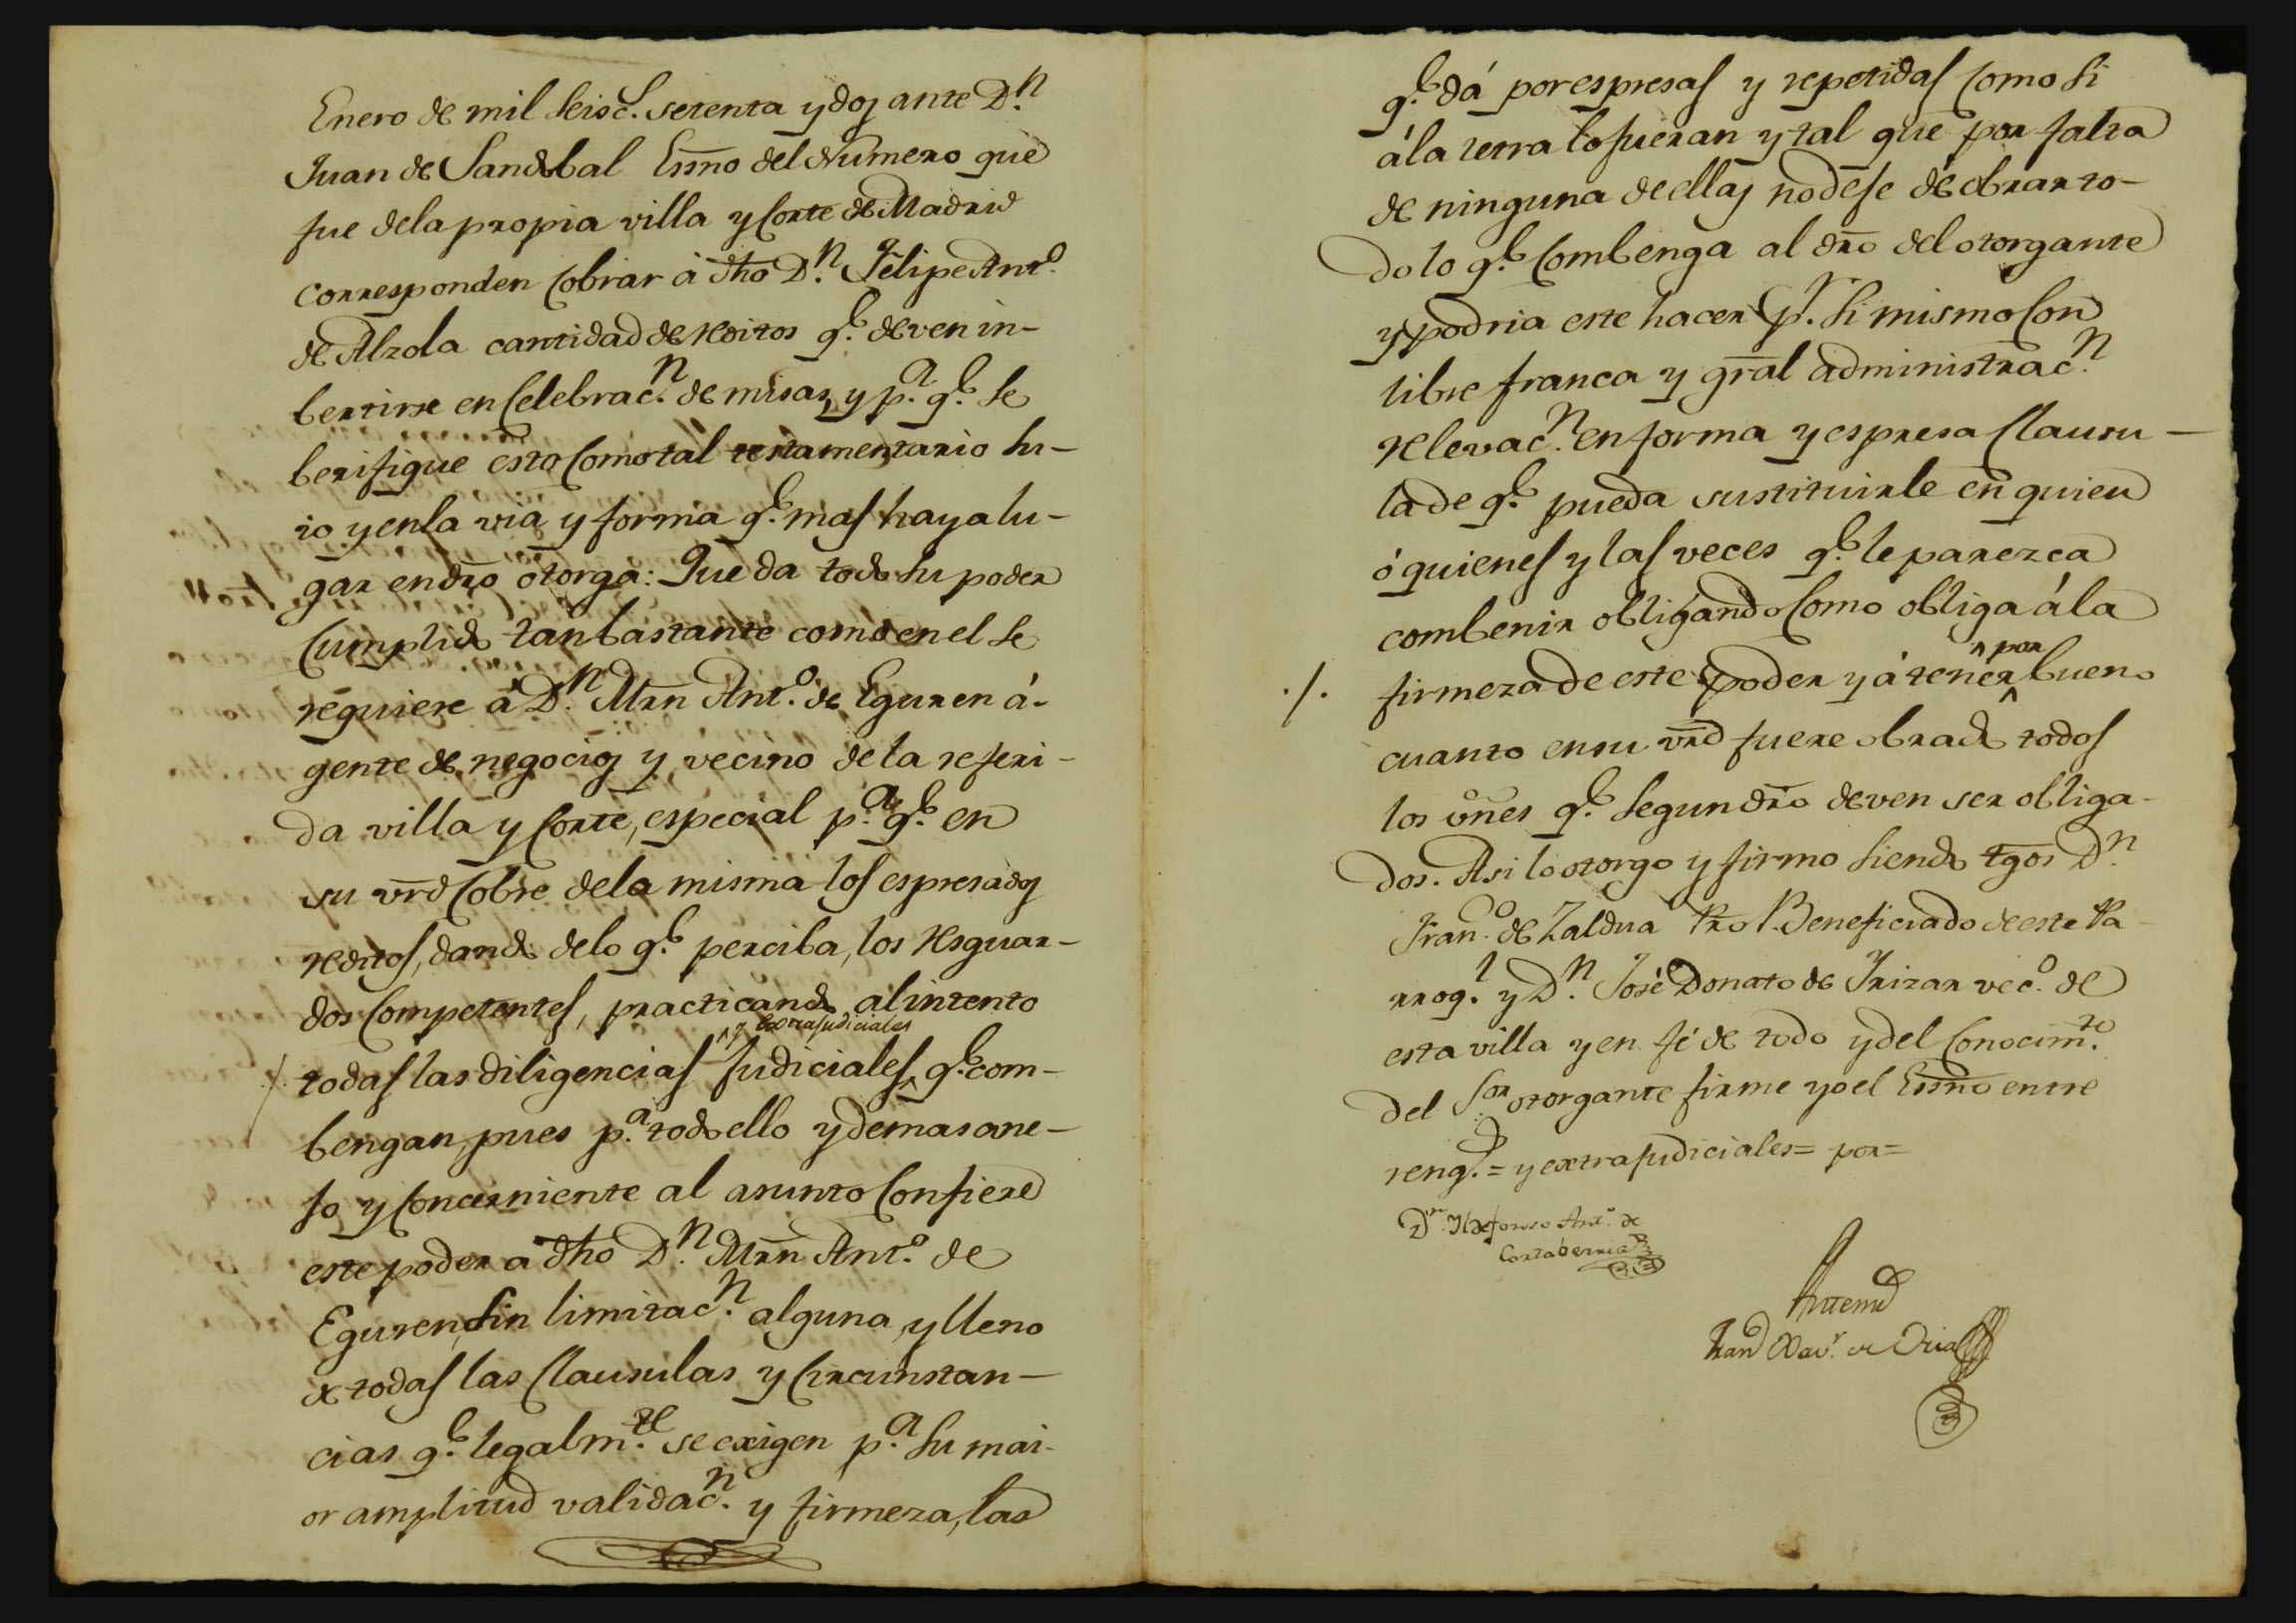 Enero de mil seisc.s setenta y dos ante D.n
Juan de Sandobal Essno del Numero que
fue dela propia villa y Corte de Madrid
corresponden Cobrar á dho D.n Felipe Ant.o
de Alzola cantidad de reditos q.e deven in-
bertirse en Celebrac.n de misas, y p.a q.e se
berifique esto Como tal testamentario su-
io y enla via y forma q.e mas haya lu-
gar en dro otorga: Que da todo su poder
Cumplido tan bastante como en el se
requiere á D.n Mrn Ant.o de Eguren á-
gente de negocios y vecino de la referi-
da villa y Corte, especial p.a q.e en
su vrd Cobre dela misma los espresados
reditos, dando delo q.e perciba, los resguar-
dos Competentes, practicando al intento
y extrajudiciales
/. todas las diligencias Judiciales q.e com-
bengan, pues p.a todo ello y demas ane-
jo y Concerniente al asunto Confiere
este poder á dho D.n Mrn Ant.o de
Eguren, sin limitac.n alguna, y lleno
de todas las Clausulas y Circunstan-
cias q.e legalm.te se exigen p.a su mai-
or amplitud validac.n y firmeza, las
q.e dá por espresas y repetidas Como si
á la letra lo fueran y tal que por falta
de ninguna de ellas no dese de obrar to-
do lo q.e Combenga al dro del otorgante
y podria este hacer p.r si mismo Con
libre franca y gral administrac.n
relevac.n en forma y espresa Clausu-
la de q.e pueda sustituirle en quien
ó quienes y las veces q.e le parezca
combenir obligando Como obliga á la
por
./. firmeza de este poder y á tener bueno
cuanto en su vrd fuere obrado todos
los vnes q.e segun dro deven ser obliga-
dos. Asi lo otorgo y firmo siendo tgos D.n
Fran.co de Zaldua Pro Beneficiado de este Pa-
rroq.l y D.n José Donato de Yrizar vec.o de
esta villa y en fé de todo y del Conocim.to
del S.or otorgante firme yo el Essno entre
reng.s = y extrajudiciales = por =
D.n Yldefonso Ant.o de
Cortaberria
Antemi
Xav.r de